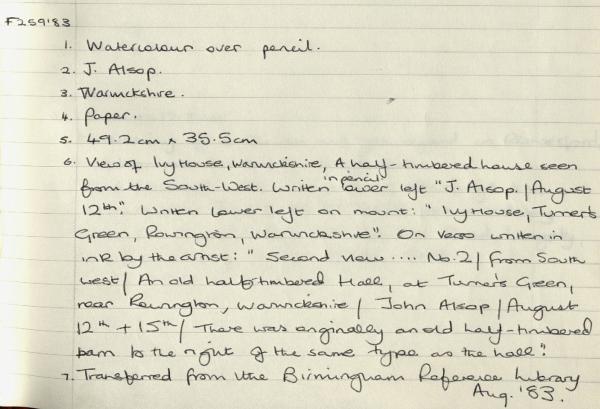 F259'83
1. Watercolour over pencil.
2. J. Alsop.
3. Warwickshire.
4. Paper.
5. 49.2cm x 35.5cm
6. View of Ivy House, Warwickshire, A half-timbered house seen
from the South-West. Written in pencil lower left "J. Alsop. | August
12th". Written lower left on mount: "Ivy House, Turner's
Green, Rowington, Warwickshire". On verso written in
ink by the artist: "Second view .... No. 2 | from South
west | An old half-timbered Hall, at Turner's Green,
near Rowington, Warwickshire | John Alsop | August
12th + 15th | There was originally an old half-timbered
barn to the right of the same type as the hall".
7. Transferred from the Birmingham Reference Library
Aug. '83.